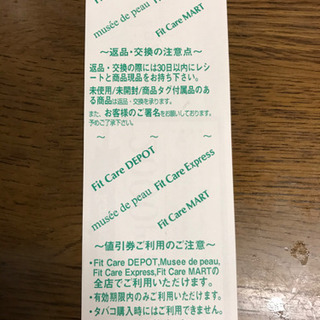 musée de peau
Fit Care MART
～返品・交換の注意点～
返品・交換の際には30日以内にレシ
ートと商品現品をお持ち下さい。
未使用/未開封/商品タグ付属品のあ
る商品は返品・交換を承ります。
また、お客様のご署名をお願いしております。
予めご了承下さい。
～ ～ ～
Fit Care DEPOT
musée de peau
Fit Care Express
Fit Care MART
～値引券ご利用のご注意～
・Fit Care DEPOT,Musee de peau,
Fit Care Express,Fit Care MARTの
全店でご利用いただけます。
・有効期限内のみご利用いただけます。
・タバコ購入時にはご利用できません。